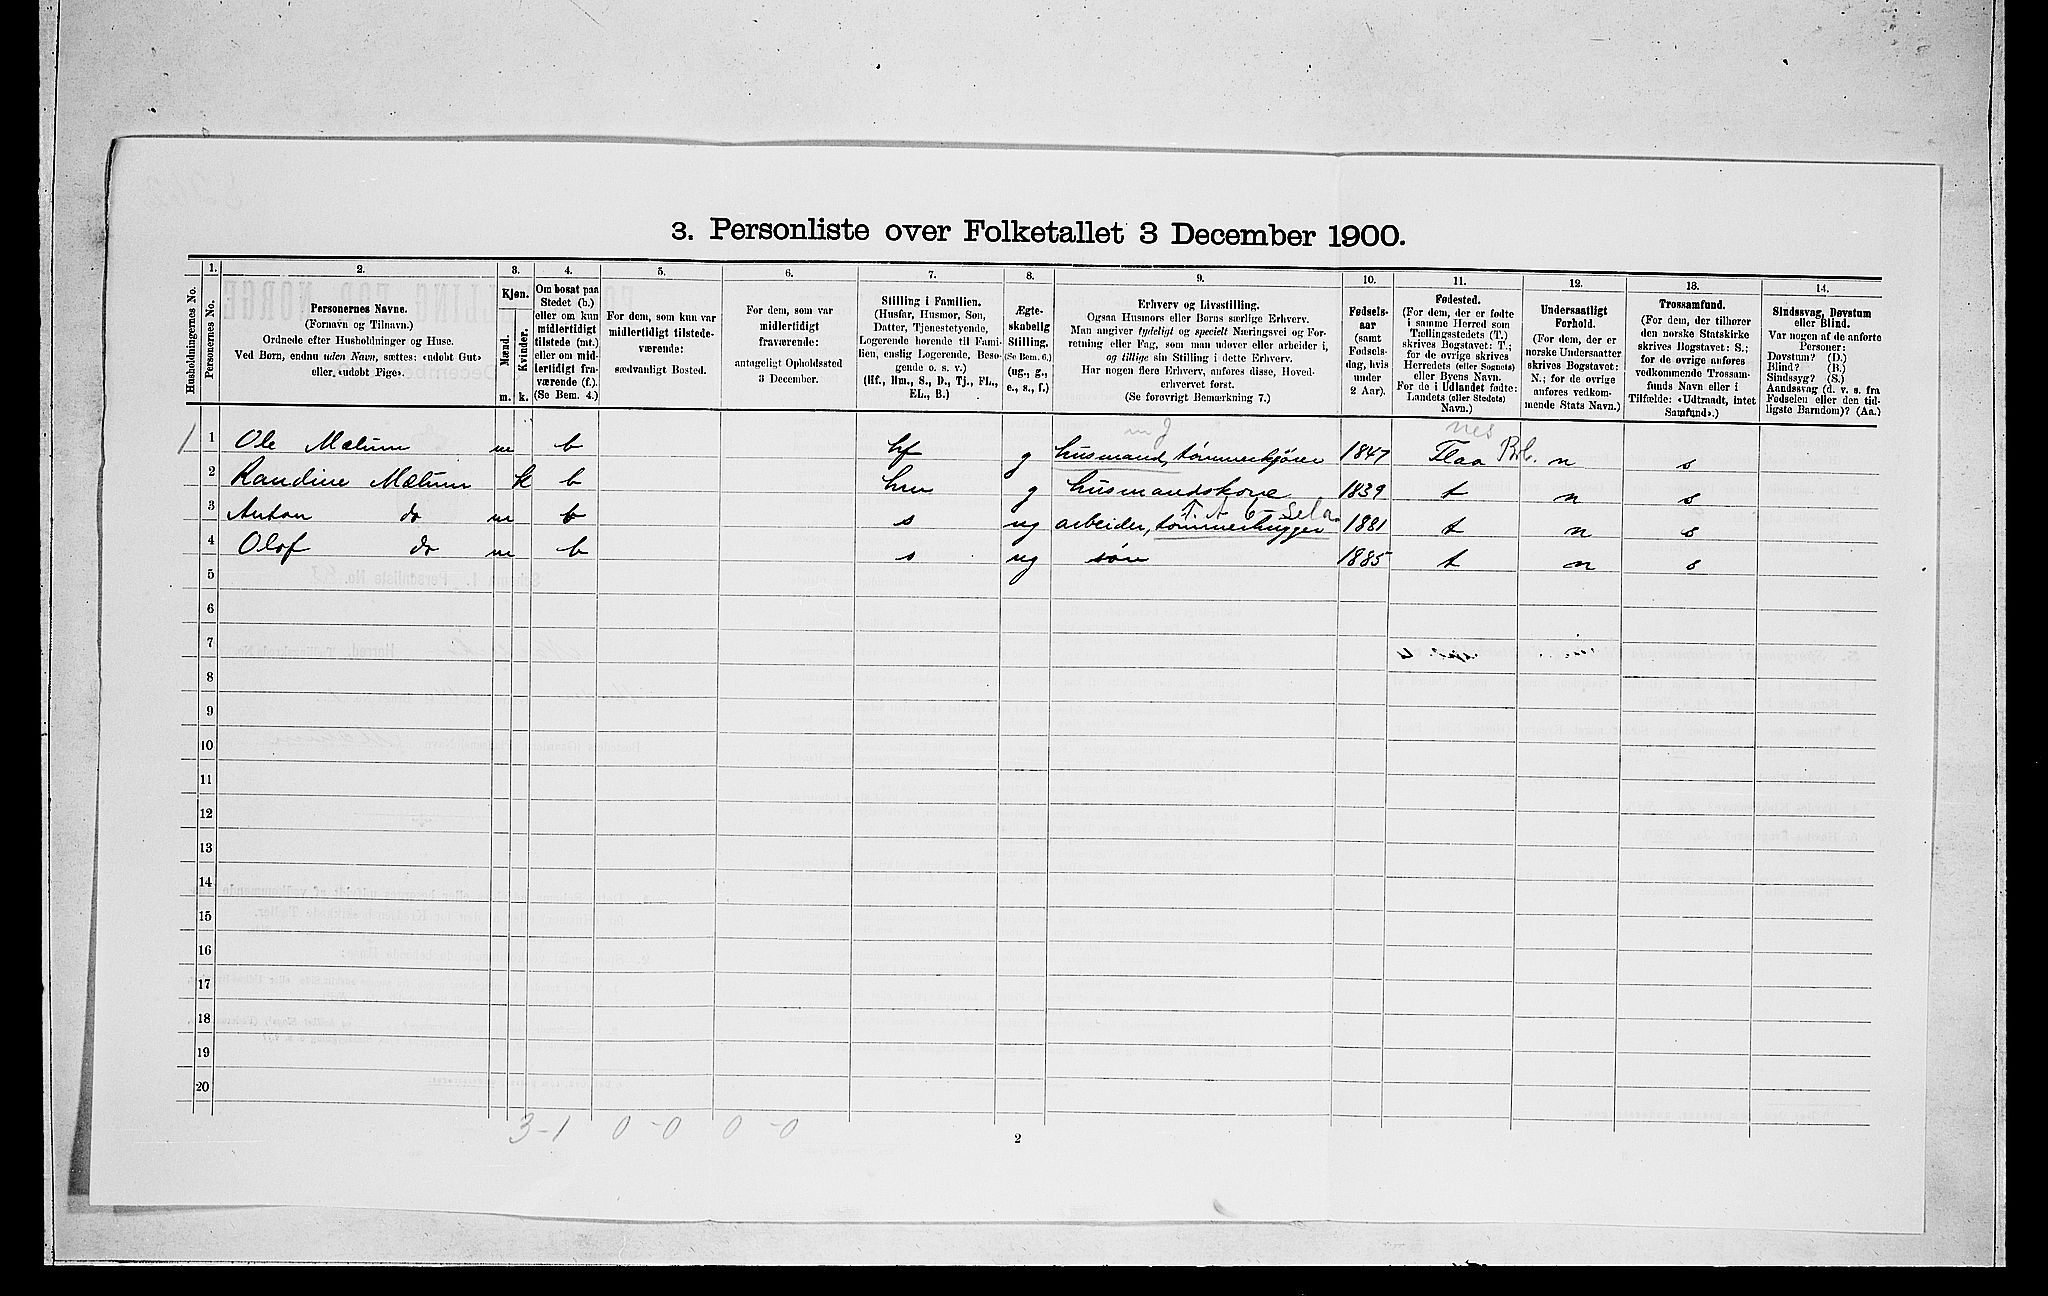 3. Personliste over Folketallet 3 December 1900.
Husholdningernes No.
1.
Personernes No.
2.
Personernes Navne.
(Fornavn og Tilnavn.)
Ordnede efter Husholdninger og Huse.
Ved Børn, endnu uden Navn, sættes: «udøbt Gut»
eller «udøbt Pige».
3.
Kjøn.
Mænd.
Kvinder.
m. k.
4.
Om bosat paa
Stedet (b.)
eller om kun
midlertidigt
tilstede (mt.)
eller om mid-
lertidigt fra-
værende (f.).
(Se Bem. 4.)
5.
For dem, som kun var
midlertidigt tilstede-
værende:
sædvanligt Bosted.
6.
For dem, som var
midlertidigt
fraværende:
antageligt Opholdssted
3 December.
7.
Stilling i Familien.
(Husfar, Husmor, Søn,
Datter, Tjenestetyende,
Logerende hørende til Fami-
lien, enslig Logerende, Besø-
gende o. s. v.)
(Hf., Hm., S., D., Tj., FL.,
EL., B.)
8.
Ægte-
skabelig
Stilling.
(Se Bem. 6.)
(ug., g.,
e., s., f.)
9.
Erhverv og Livsstilling.
Ogsaa Husmors eller Børns særlige Erhverv.
Man angiver tydeligt og specielt Næringsvei og For-
retning eller Fag, som man udøver eller arbeider i,
og tillige sin Stilling i dette Erhverv.
Har nogen flere Erhverv, anføres disse, Hoved-
erhvervet først.
(Se forøvrigt Bemærkning 7.)
10.
Fødsels-
aar
(samt
Fødsels-
dag, hvis
under
2 Aar).
11.
Fødested.
(For dem, der er fødte
i samme Herred som
Tællingsstedets (T.)
skrives Bogstavet: T.;
for de øvrige skrives
Herredets (eller Sognets)
eller Byens Navn.
For de i Udlandet fødte:
Landets (eller Stedets)
Navn.)
12.
Undersaatligt
Forhold.
(For dem, der er
norske Undersaatter
skrives Bogstavet:
N.; for de øvrige
anføres vedkom-
mende Stats Navn.)
13.
Trossamfund.
(For dem, der tilhører
den norske Statskirke
skrives Bogstavet: S.;
for de øvrige anføres
vedkommende Trossam-
funds Navn eller i
Tilfælde: «Udtraadt, intet
Samfund».)
14.
Sindssvag, Døvstum
eller Blind.
Var nogen af de anførte
Personer:
Døvstum? (D.)
Blind? (B.)
Sindssyg? (S.)
Aandssvag (d. v. s. fra
Fødselen eller den tid-
ligste Barndom)? (Aa.)
nes
1 1 Ole Mælum m b hf g husmand, tømmerkjører 1847 Flaa Bsk. n s
2 Randine Mælum k b hm g husmandskone 1839 t n s
3 Anton do m b s ug arbeider, tømmerhugger 1881 t n s
4 Olaf do m b s ug søn 1885 t n s
5
6
7
8
9
10
11
12
13
14
15
16
17
18
19
20
3-1 0-0 0-0
2